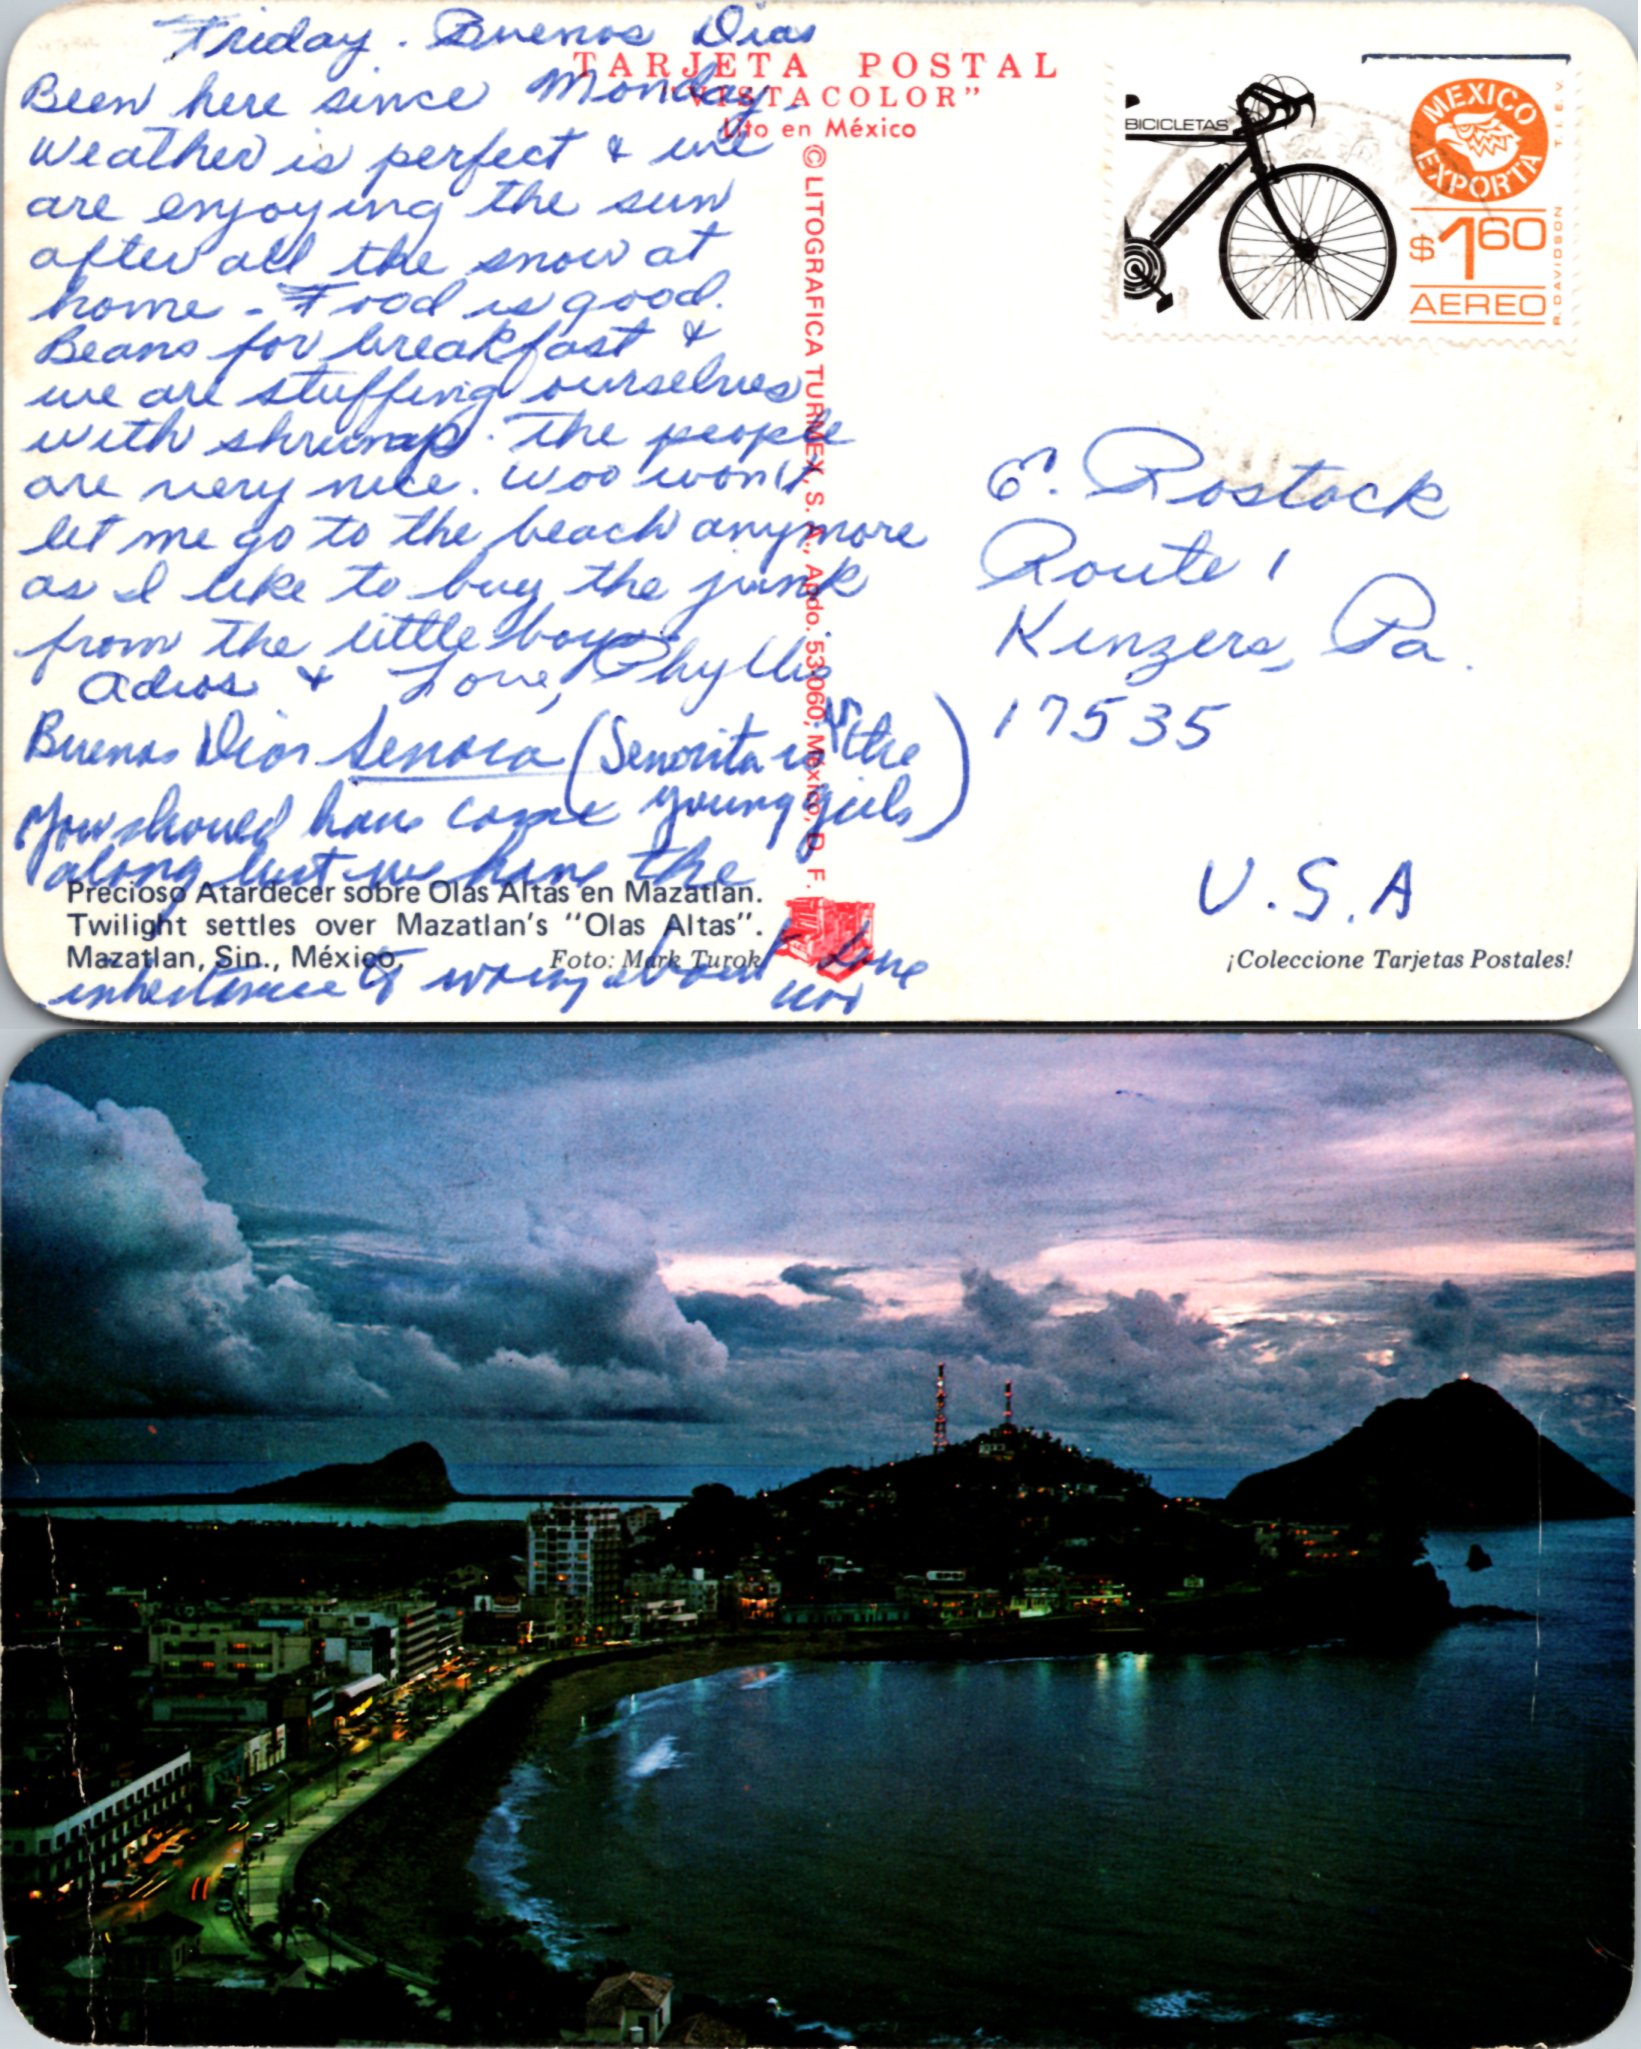 Friday. Buenos Dias
Been here since Monday.
Weather is perfect & we
are enjoying the sun
after all the snow at
home - Food is good.
Beans for breakfast &
we are stuffing ourselves
with shrimp. The people
are very nice. Woo won't
let me go to the beach anymore
as I like to buy the junk
from the little boys.
Adios & Love, Phyllis
Buenos Dias Senora (Senorita is for the
young girls)
You should have come
along but we have the
inheritance to worry about Love
Woo
TARJETA POSTAL
"VISTACOLOR"
Lito en México
© LITOGRAFICA TURMEX, S. A., Apdo. 53-060, México, D. F.
BICICLETAS
MEXICO
EXPORTA
$1.60
AEREO
T.I.E.V.
R. DAVIDSON
E. Rostock
Route 1
Kinzers, Pa.
17535
U.S.A
Precioso Atardecer sobre Olas Altas en Mazatlán.
Twilight settles over Mazatlan's "Olas Altas".
Mazatlan, Sin., México.
Foto: Mark Turok
¡Coleccione Tarjetas Postales!